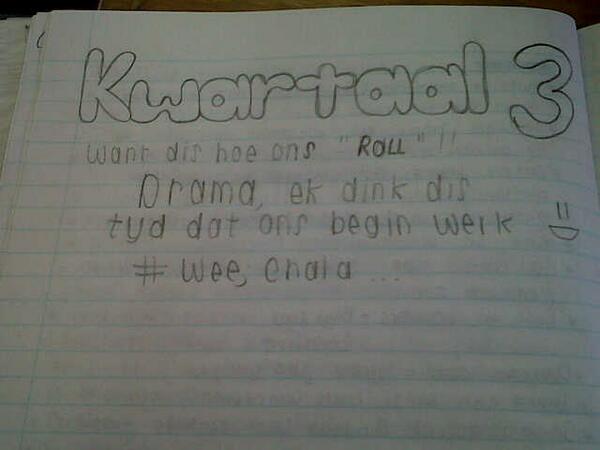 Kwartaal 3
Want dis hoe ons "ROLL"!!
Drama, ek dink dis
tyd dat ons begin werk
# Wee, Chala ...